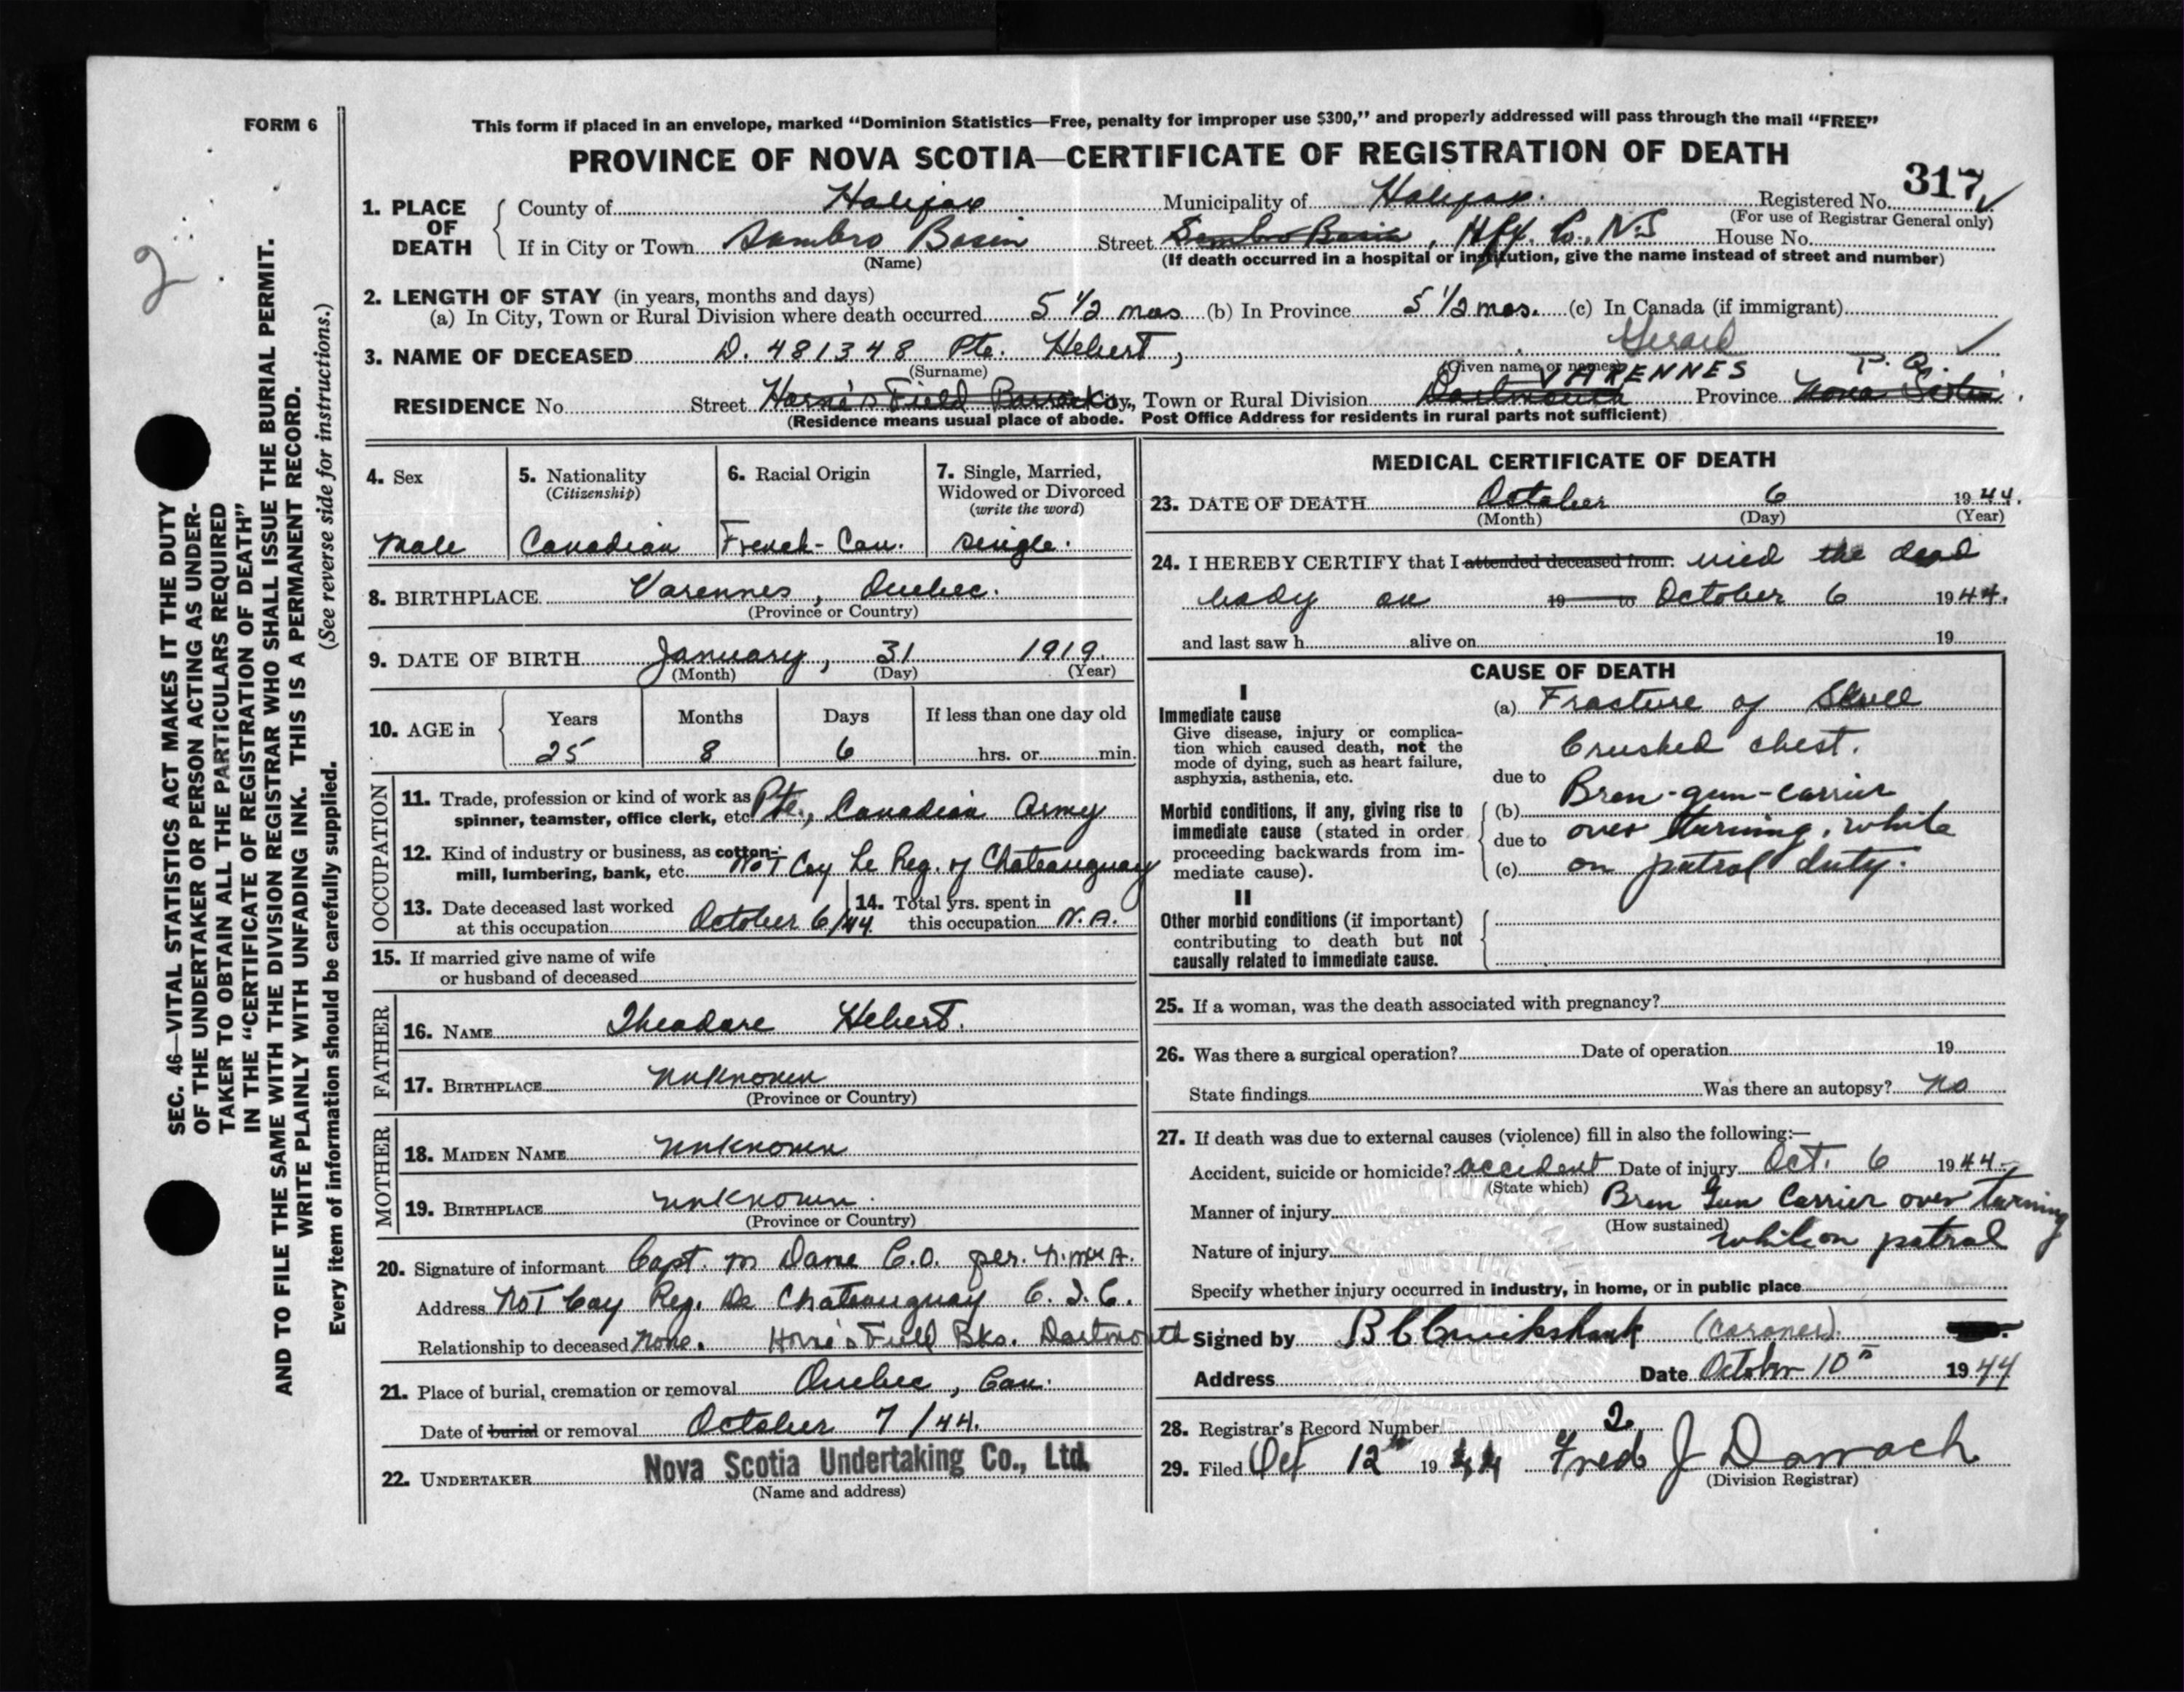 FORM 6
This form if placed in an envelope, marked “Dominion Statistics—Free, penalty for improper use $300,” and properly addressed will pass through the mail “FREE”
PROVINCE OF NOVA SCOTIA—CERTIFICATE OF REGISTRATION OF DEATH
317
1. PLACE OF DEATH County of Halifax Municipality of Halifax. Registered No.
(For use of Registrar General only)
If in City or Town Sambro Basin Street Sambro Basin, Hfx. Co., N.S House No.
(Name) (If death occurred in a hospital or institution, give the name instead of street and number)
2. LENGTH OF STAY (in years, months and days)
(a) In City, Town or Rural Division where death occurred 5 1/2 mos (b) In Province 5 1/2 mos. (c) In Canada (if immigrant)
3. NAME OF DECEASED D. 481348 Pte. Hebert, Gerard
(Surname) (Given name or names)
VARENNES P.Q.
RESIDENCE No. Street Horne's Field Barracks City, Town or Rural Division Dartmouth Province Nova Scotia.
(Residence means usual place of abode. Post Office Address for residents in rural parts not sufficient)
4. Sex
male
5. Nationality
(Citizenship)
Canadian
6. Racial Origin
French-Can.
7. Single, Married,
Widowed or Divorced
(write the word)
single.
8. BIRTHPLACE Varennes, Quebec.
(Province or Country)
9. DATE OF BIRTH January, 31 1919.
(Month) (Day) (Year)
10. AGE in Years Months Days If less than one day old
25 8 6 hrs. or min.
OCCUPATION
11. Trade, profession or kind of work as Pte., Canadian Army
spinner, teamster, office clerk, etc.
12. Kind of industry or business, as cotton-
mill, lumbering, bank, etc. No 1 Coy Le Reg. of Chateauguay
13. Date deceased last worked
at this occupation October 6/44
14. Total yrs. spent in
this occupation N.A.
15. If married give name of wife
or husband of deceased
FATHER
16. NAME Theodore Hebert.
17. BIRTHPLACE unknown
(Province or Country)
MOTHER
18. MAIDEN NAME unknown
19. BIRTHPLACE unknown.
(Province or Country)
20. Signature of informant Capt. M Dame C.O. per.
Address No 1 Coy Reg. De Chateauguay C.I.C.
Relationship to deceased none. Horne's Field Bks. Dartmouth
21. Place of burial, cremation or removal Quebec, Can.
Date of burial or removal October 7/44.
22. UNDERTAKER Nova Scotia Undertaking Co., Ltd.
(Name and address)
MEDICAL CERTIFICATE OF DEATH
23. DATE OF DEATH October 6 1944.
(Month) (Day) (Year)
24. I HEREBY CERTIFY that I attended deceased from: the dead
body on 19 to October 6 1944.
and last saw h alive on 19
CAUSE OF DEATH
I
Immediate cause
Give disease, injury or complica-
tion which caused death, not the
mode of dying, such as heart failure,
asphyxia, asthenia, etc.
(a) Fracture of Skull
Crushed chest.
due to
Morbid conditions, if any, giving rise to
immediate cause (stated in order
proceeding backwards from im-
mediate cause).
(b) Bren-gun-carrier
due to over turning, while
(c) on patrol duty.
II
Other morbid conditions (if important)
contributing to death but not
causally related to immediate cause.
25. If a woman, was the death associated with pregnancy?
26. Was there a surgical operation? Date of operation 19
State findings Was there an autopsy? No
27. If death was due to external causes (violence) fill in also the following:—
Accident, suicide or homicide? accident Date of injury Oct. 6 1944.
(State which)
Manner of injury Bren Gun Carrier over turning
(How sustained)
Nature of injury while on patrol
Specify whether injury occurred in industry, in home, or in public place
Signed by B C Cruikshank (coroner).
Address Date October 10th 1944
28. Registrar's Record Number 2
29. Filed Oct 12th 1944 Fred J Darrach
(Division Registrar)
2
SEC. 46—VITAL STATISTICS ACT MAKES IT THE DUTY
OF THE UNDERTAKER OR PERSON ACTING AS UNDER-
TAKER TO OBTAIN ALL THE PARTICULARS REQUIRED
IN THE “CERTIFICATE OF REGISTRATION OF DEATH”
AND TO FILE THE SAME WITH THE DIVISION REGISTRAR WHO SHALL ISSUE THE BURIAL PERMIT.
WRITE PLAINLY WITH UNFADING INK. THIS IS A PERMANENT RECORD.
Every item of information should be carefully supplied. (See reverse side for instructions.)